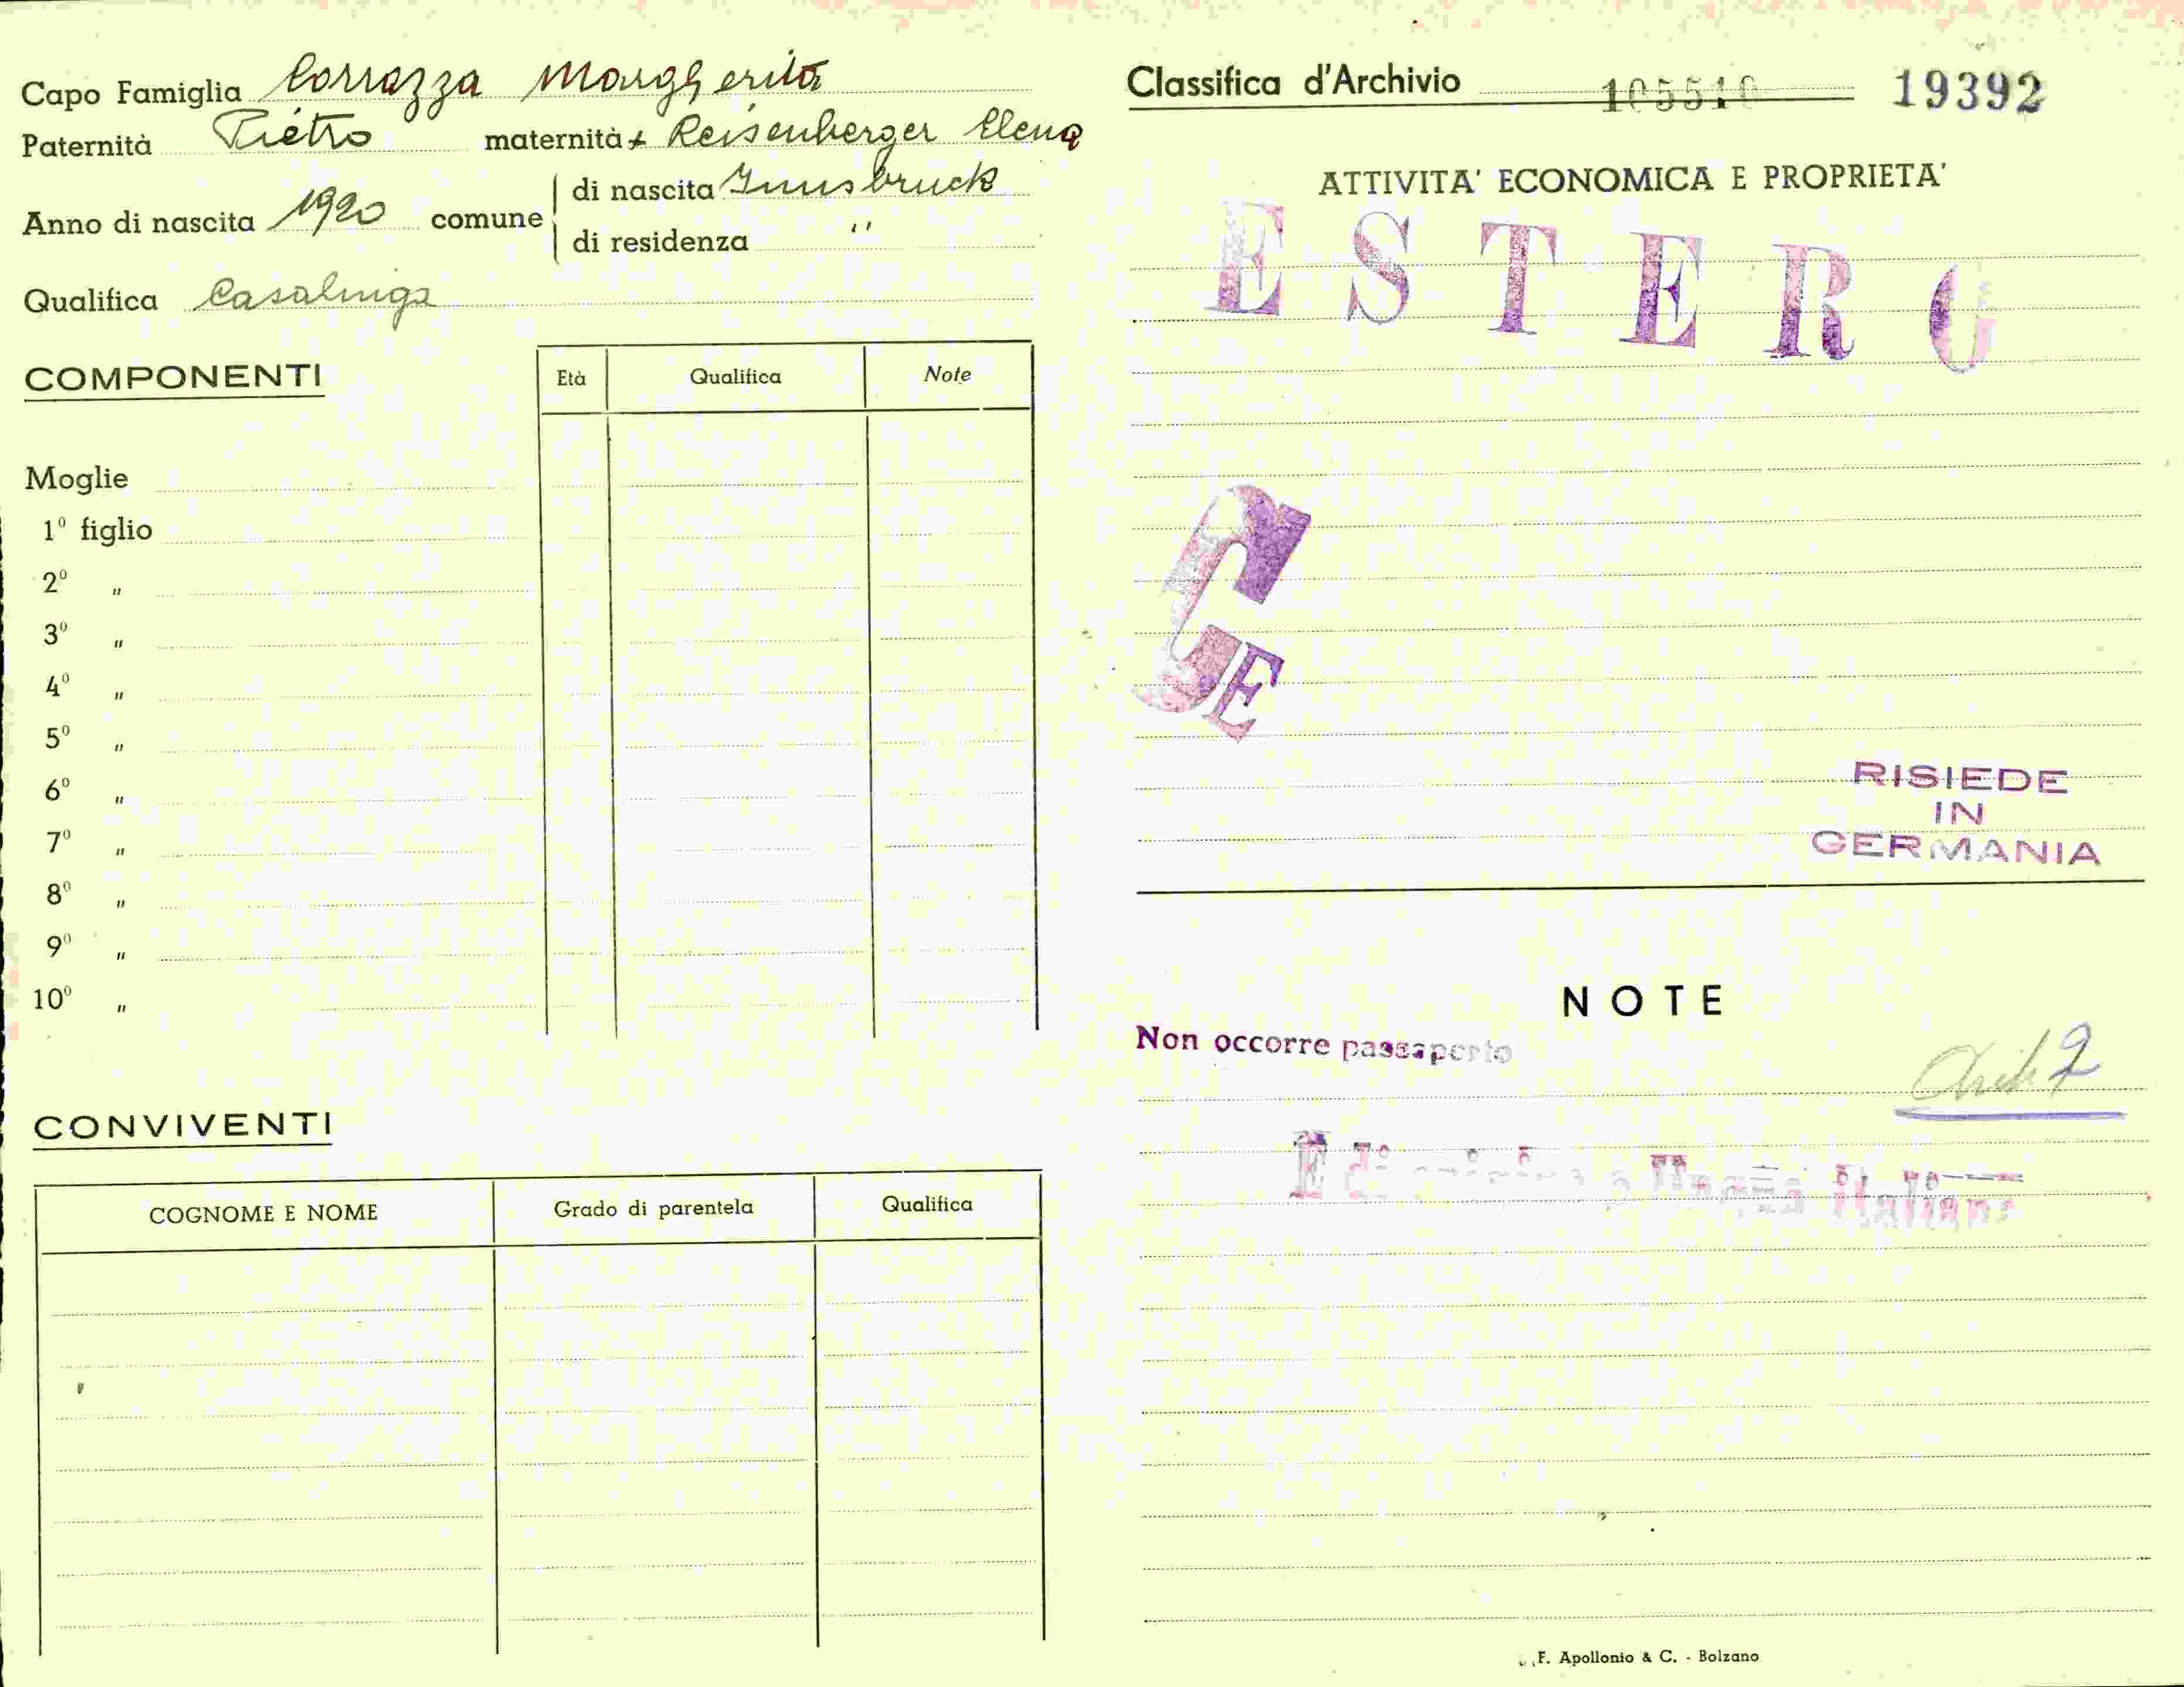 Capo Famiglia Corrazza Margherita
Paternità Pietro maternità Reisenberger Elena
Anno di nascita 1920 comune
di nascita Innsbruck
di residenza "
Qualifica Casalinga
COMPONENTI
Età Qualifica Note
Moglie
1º figlio
2º "
3º "
4º "
5º "
6º "
7º "
8º "
9º "
10º "
CONVIVENTI
COGNOME E NOME Grado di parentela Qualifica
Classifica d'Archivio 19392
ATTIVITA' ECONOMICA E PROPRIETA'
ESTERO
CE
RISIEDE
IN
GERMANIA
NOTE
Non occorre passaporto
F. Apollonio & C. - Bolzano